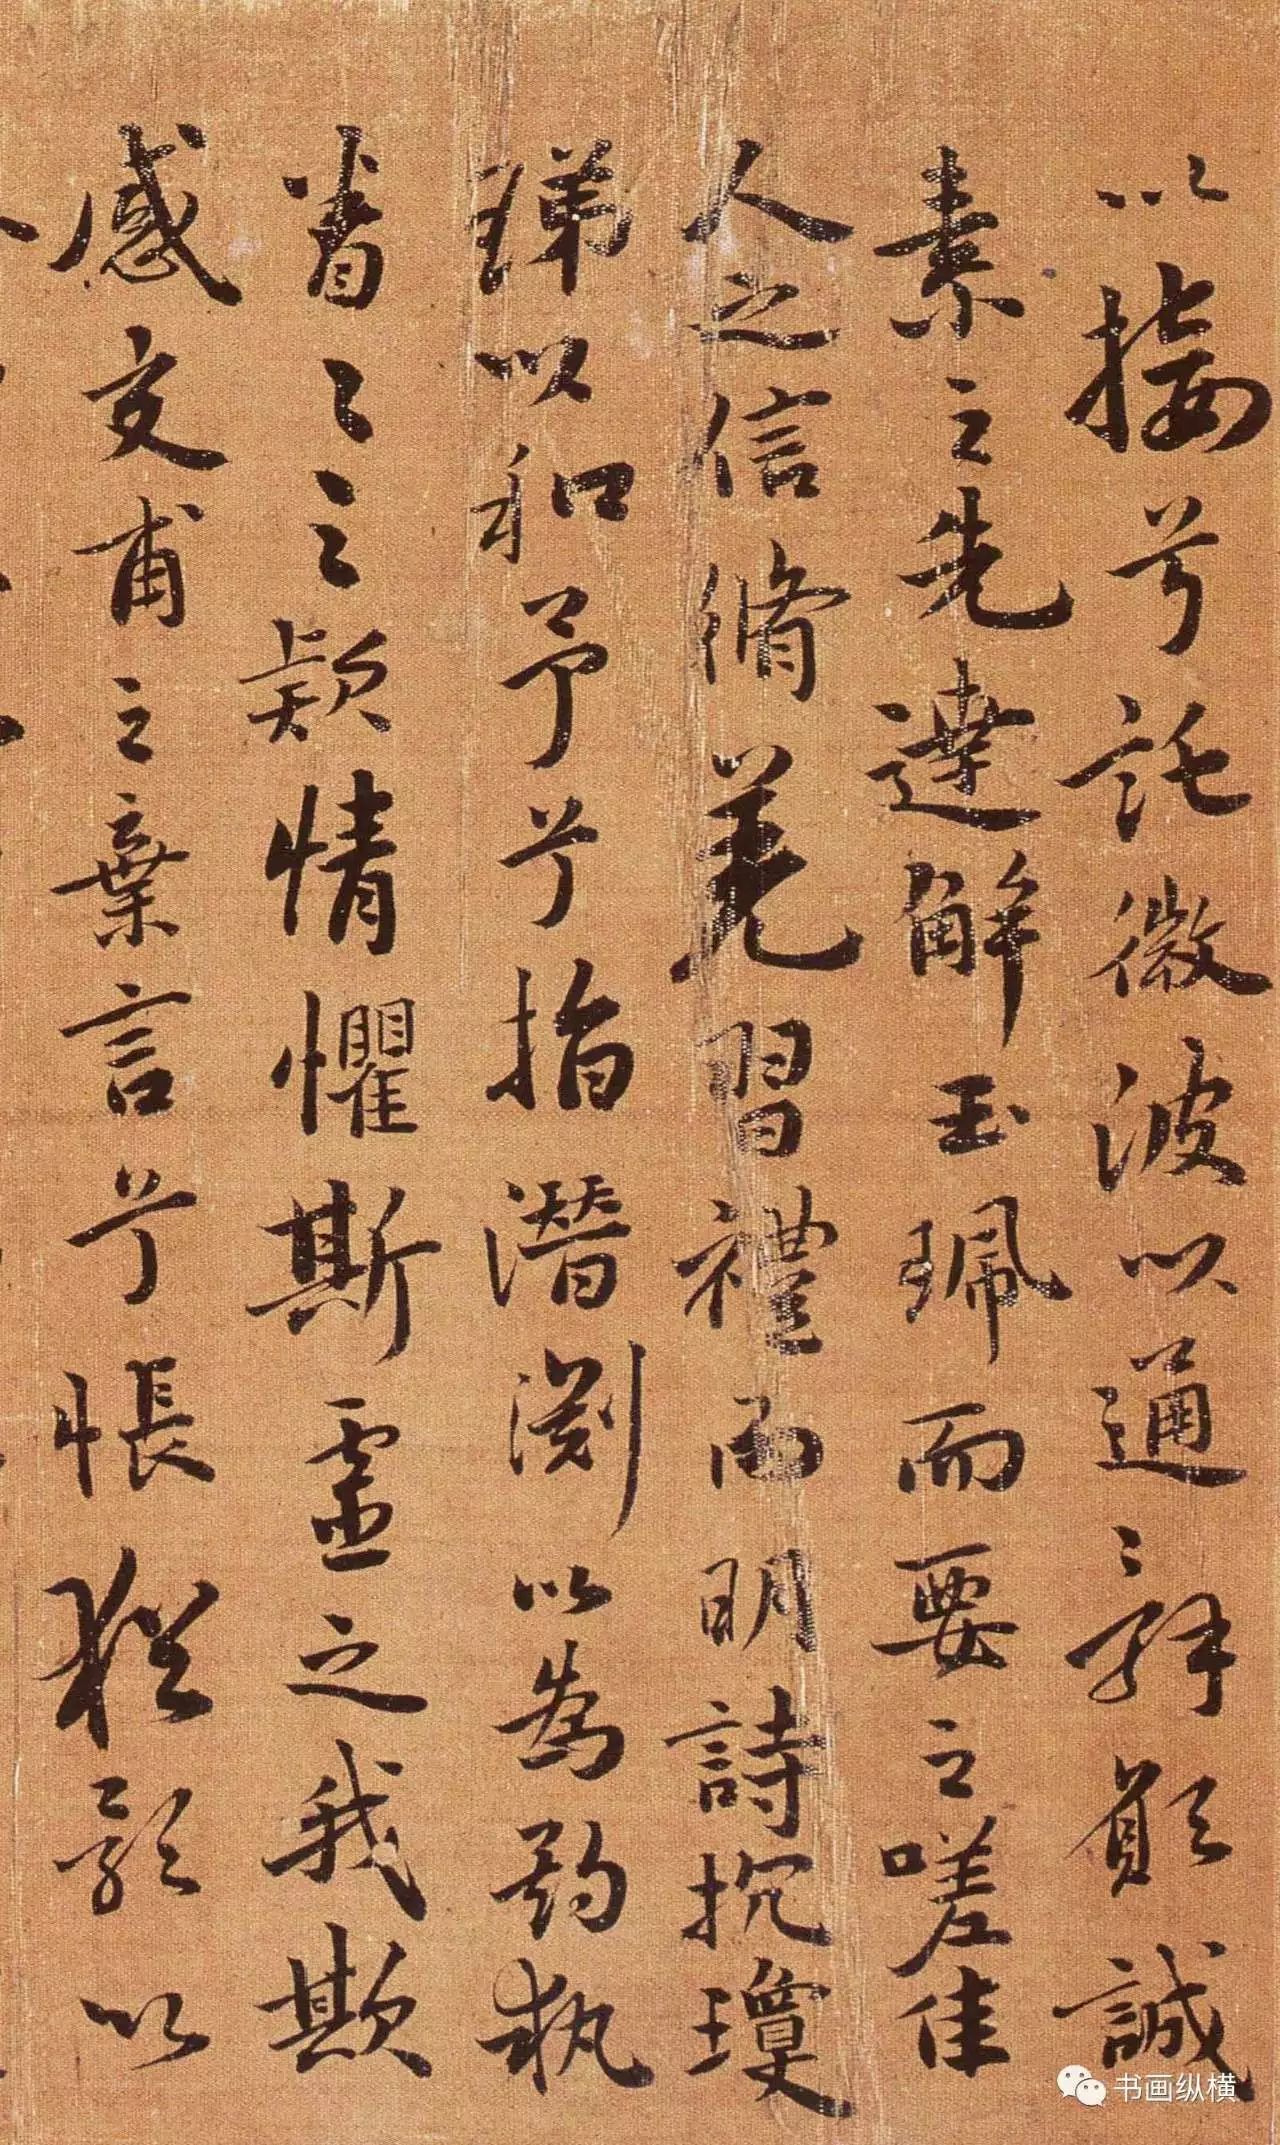 以接兮託微波以通辭願誠
素之先達解玉珮而要之嗟佳
人之信脩羌習禮而明詩抗瓊
珶以和予兮指潛淵以為期執
眷〻之款情懼斯靈之我欺
感交甫之棄言兮悵猶豫以
书画纵横